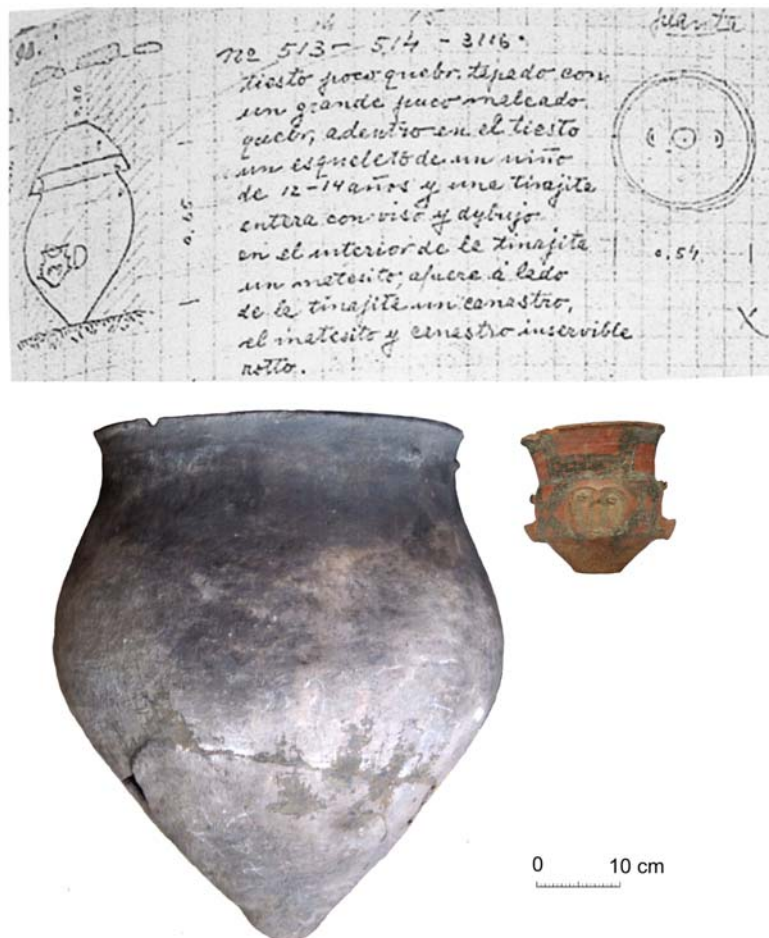 planta
nº 513 - 514 - 3116.
tiesto poco quebr. tapado con
un grande puco maleado
quebr, adentro en el tiesto
un esqueleto de un niño
de 12-14 años y una tinajita
entera con viso y dybujo
en el interior de la tinajita
un matesito, afuera á lado
de la tinajita un canastro,
el matesito y canastro inservible
rotto.
0.54
0 10 cm